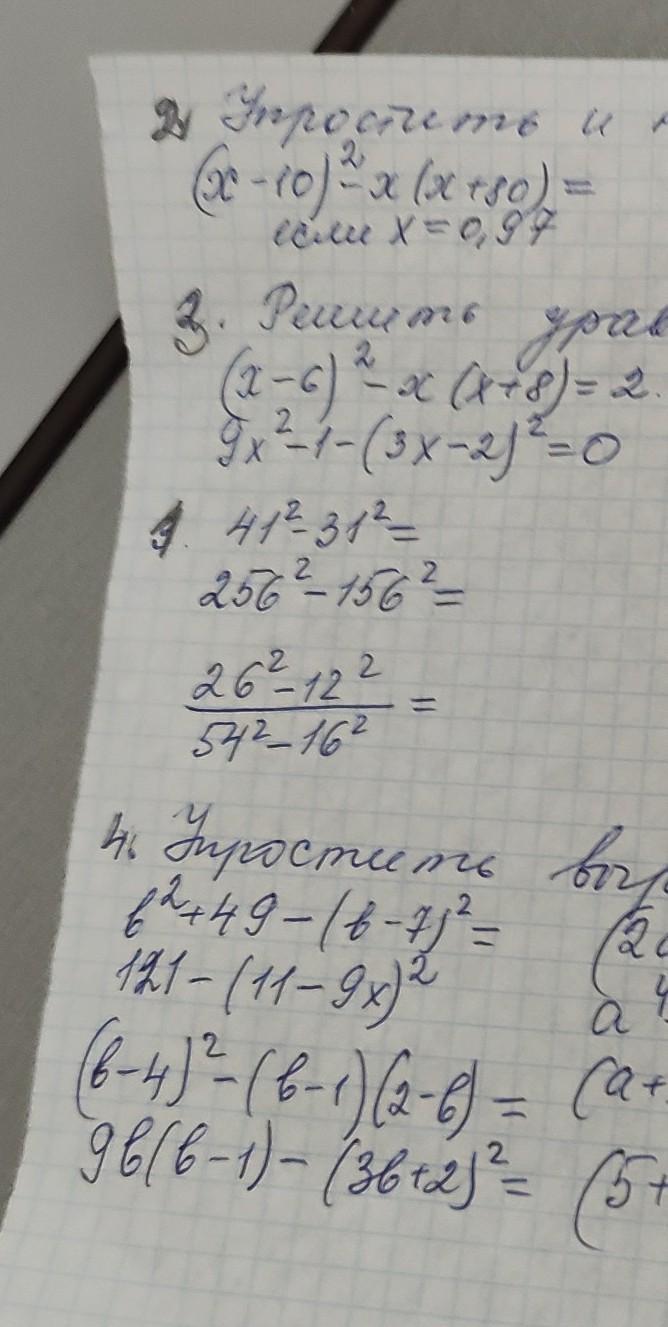 2. Упростить и
(x-10)²-x(x+80)=
если x=0,97
3. Решить урав
(x-6)²-x(x+8)=2.
9x²-1-(3x-2)²=0
1. 41²-31²=
256²-156²=
26²-12²
54²-16² =
4. Упростить выр
b²+49-(b-7)²= (2
121-(11-9x)² a⁴
(b-4)²-(b-1)(2-b)= (a+
9b(b-1)-(3b+2)²= (5+